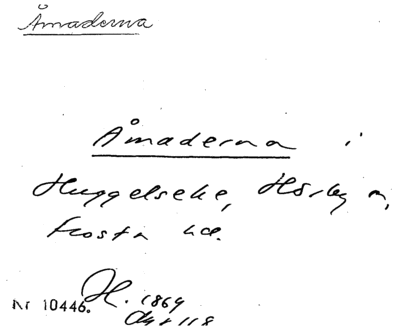 Åmaderna
Åmaderna i
Huggelseke, Hörby n,
Frosta hd.
Nr 10446. H. 1869
118